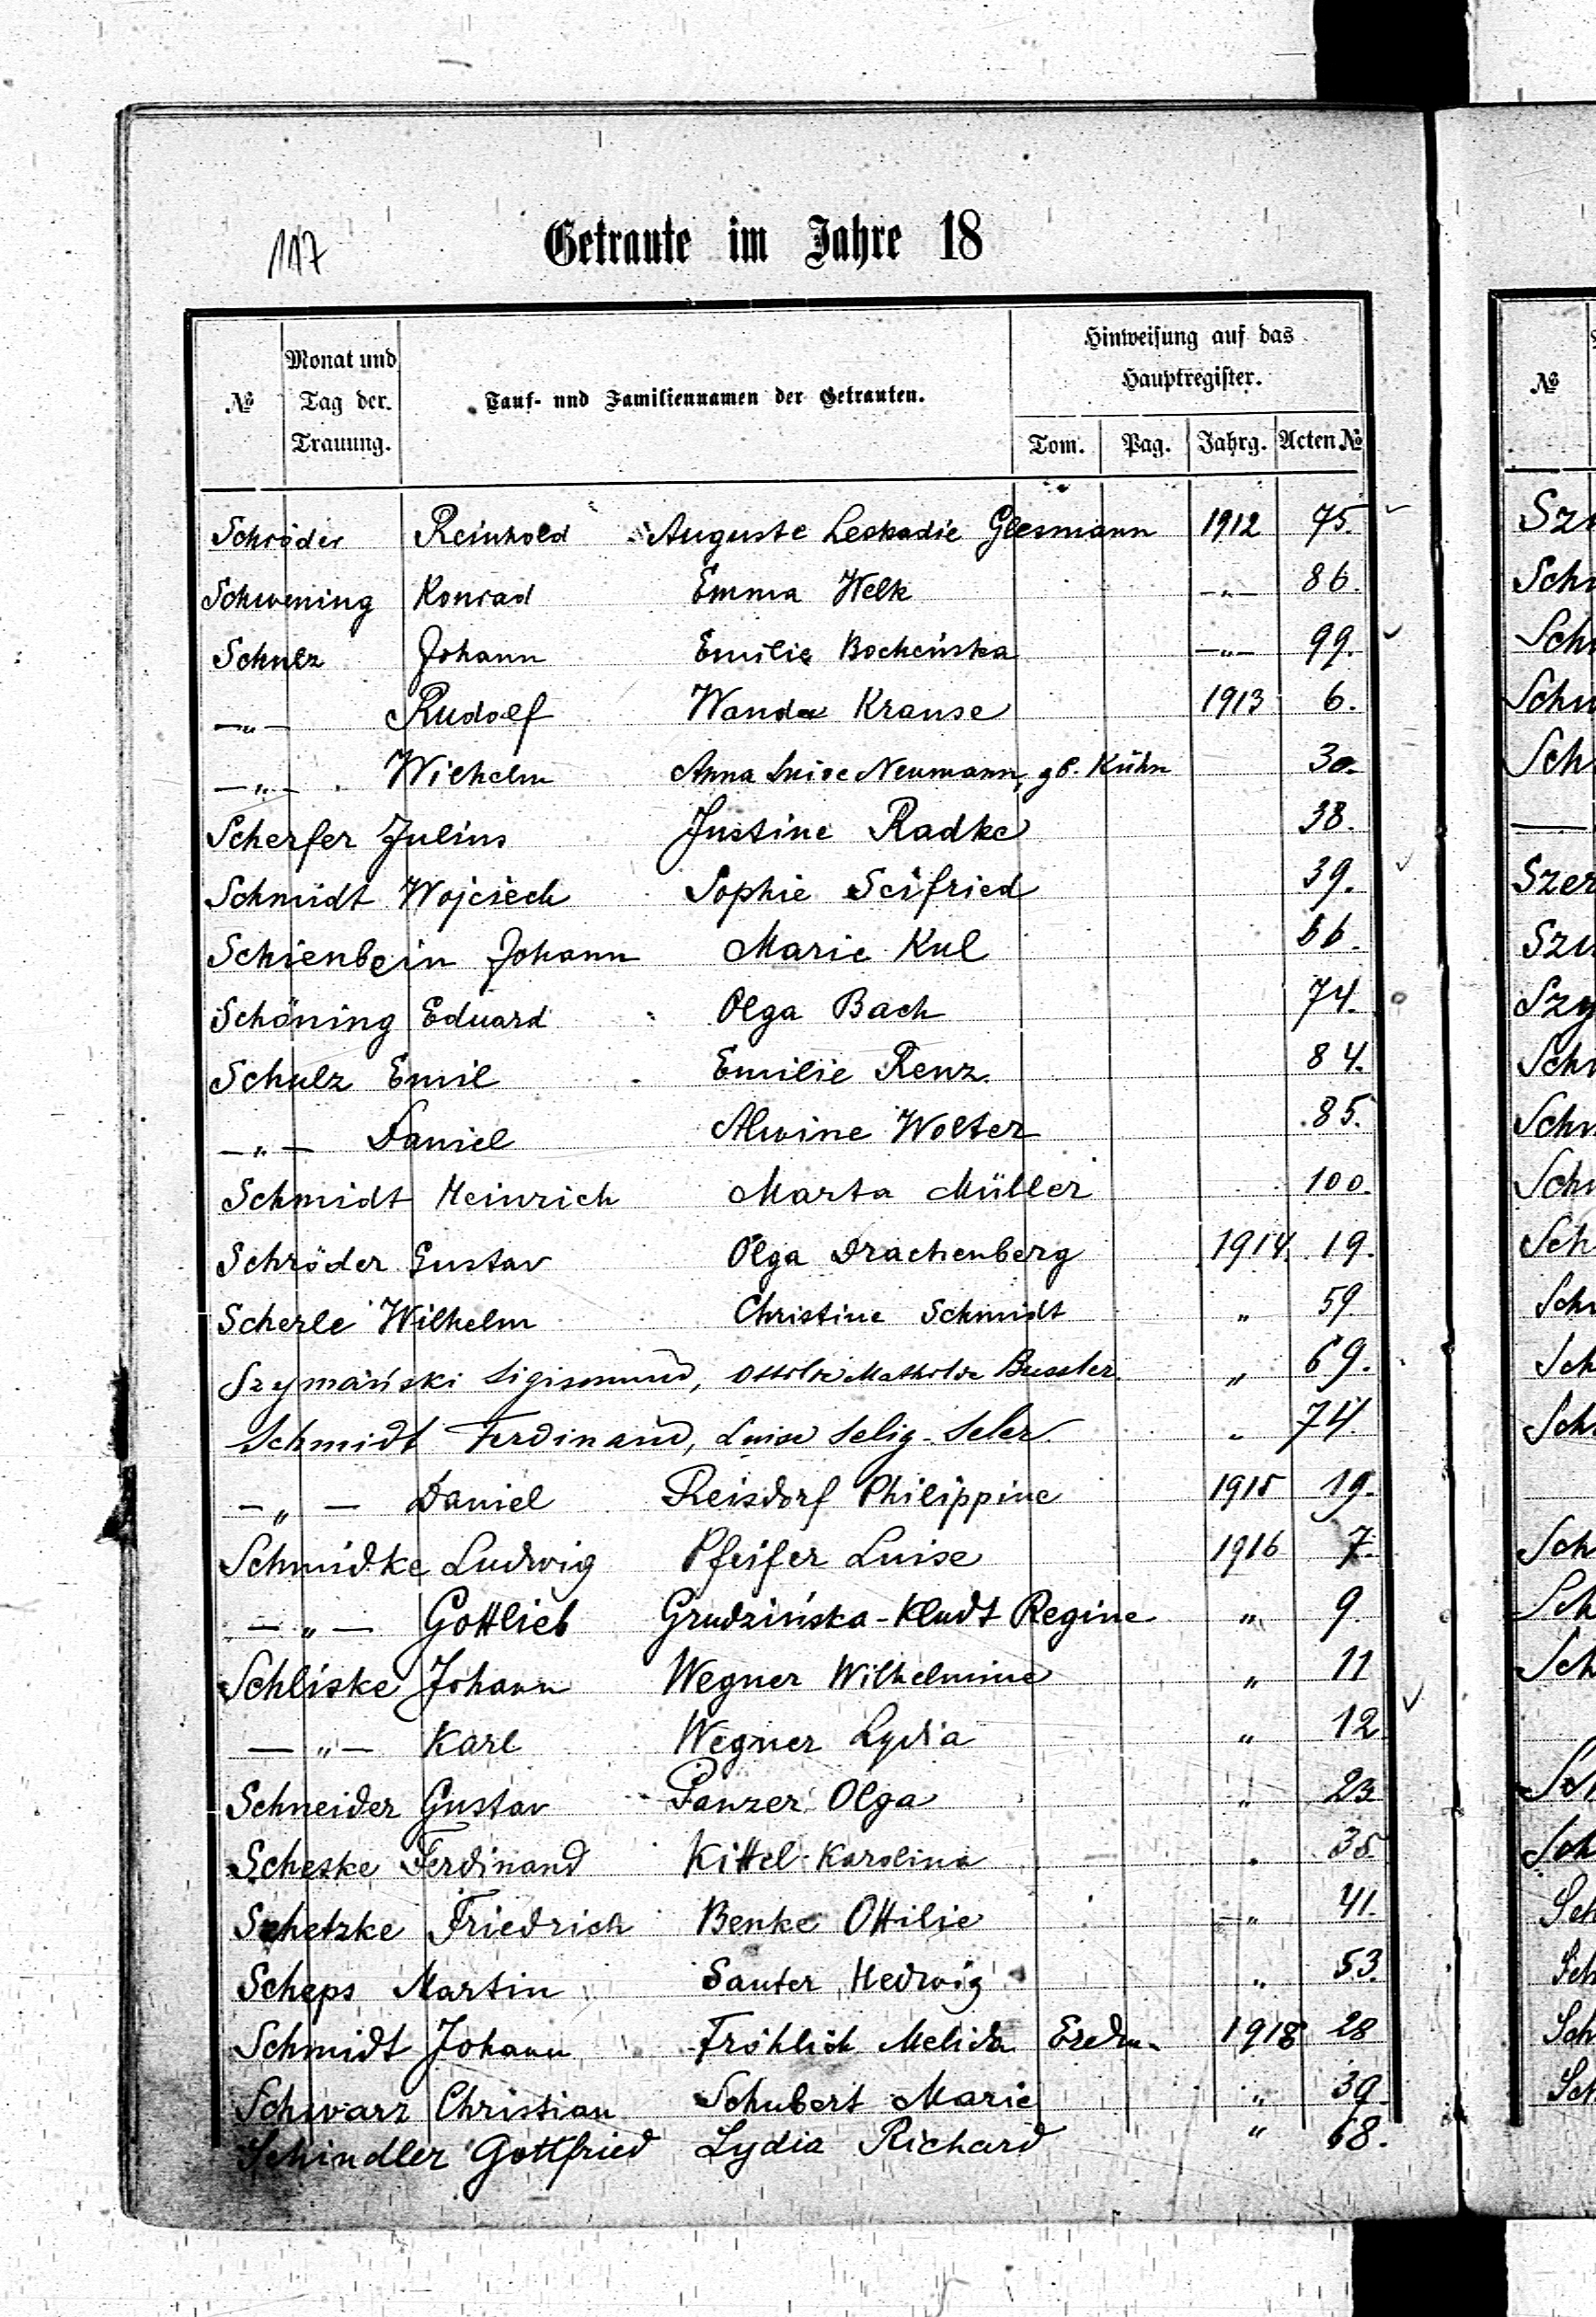 117
Getraute im Jahre 18
№ Monat und Tag der Trauung. Tauf- und Familiennamen der Getrauten. Hinweisung auf das Hauptregister.
Tom. Pag. Jahrg. Acten №
Schröder Reinhold Auguste Leokadie Glesmann 1912 75.
Schwening Konrad Emma Welk —„— 86.
Schulz Johann Emilie Bocheńska —„— 99.
—„— Rudolf Wanda Krause 1913 6.
—„— Wilhelm Anna Luise Neumann, gb. Kühn 30.
Scherfer Julius Justine Radke 38.
Schmidt Wojciech Sophie Seifried 39.
Schienbein Johann Marie Kul 66.
Schöning Eduard Olga Bach 74.
Schulz Emil Emilie Renz 84.
—„— Daniel Alwine Wolter 85.
Schmidt Heinrich Marta Müller 100.
Schröder Gustav Olga Drachenberg 1914. 19.
Scherle Wilhelm Christine Schmidt „ 59
Szymański Sigismund, Ottilie Mathilde Bussler „ 69.
Schmidt Ferdinand, Luise Selig-Seler „ 74.
—„— Daniel Reisdorf Philippine 1915 19.
Schmidke Ludwig Pfeifer Luise 1916 7.
—„— Gottlieb Grudzińska-Kludt Regine „ 9.
Schliske Johann Wegner Wilhelmine „ 11
—„— Karl Wegner Lydia „ 12
Schneider Gustav Panzer Olga „ 23
Scheske Ferdinand Kittel Karolina „ 35
Schetzke Friedrich Benke Ottilie „ 41.
Scheps Martin Sauter Hedwig „ 53.
Schmidt Johann Fröhlich Melida 1918 28
Schwarz Christian Schubert Marie „ 39
Schindler Gottfried Lydia Richard „ 68.
№